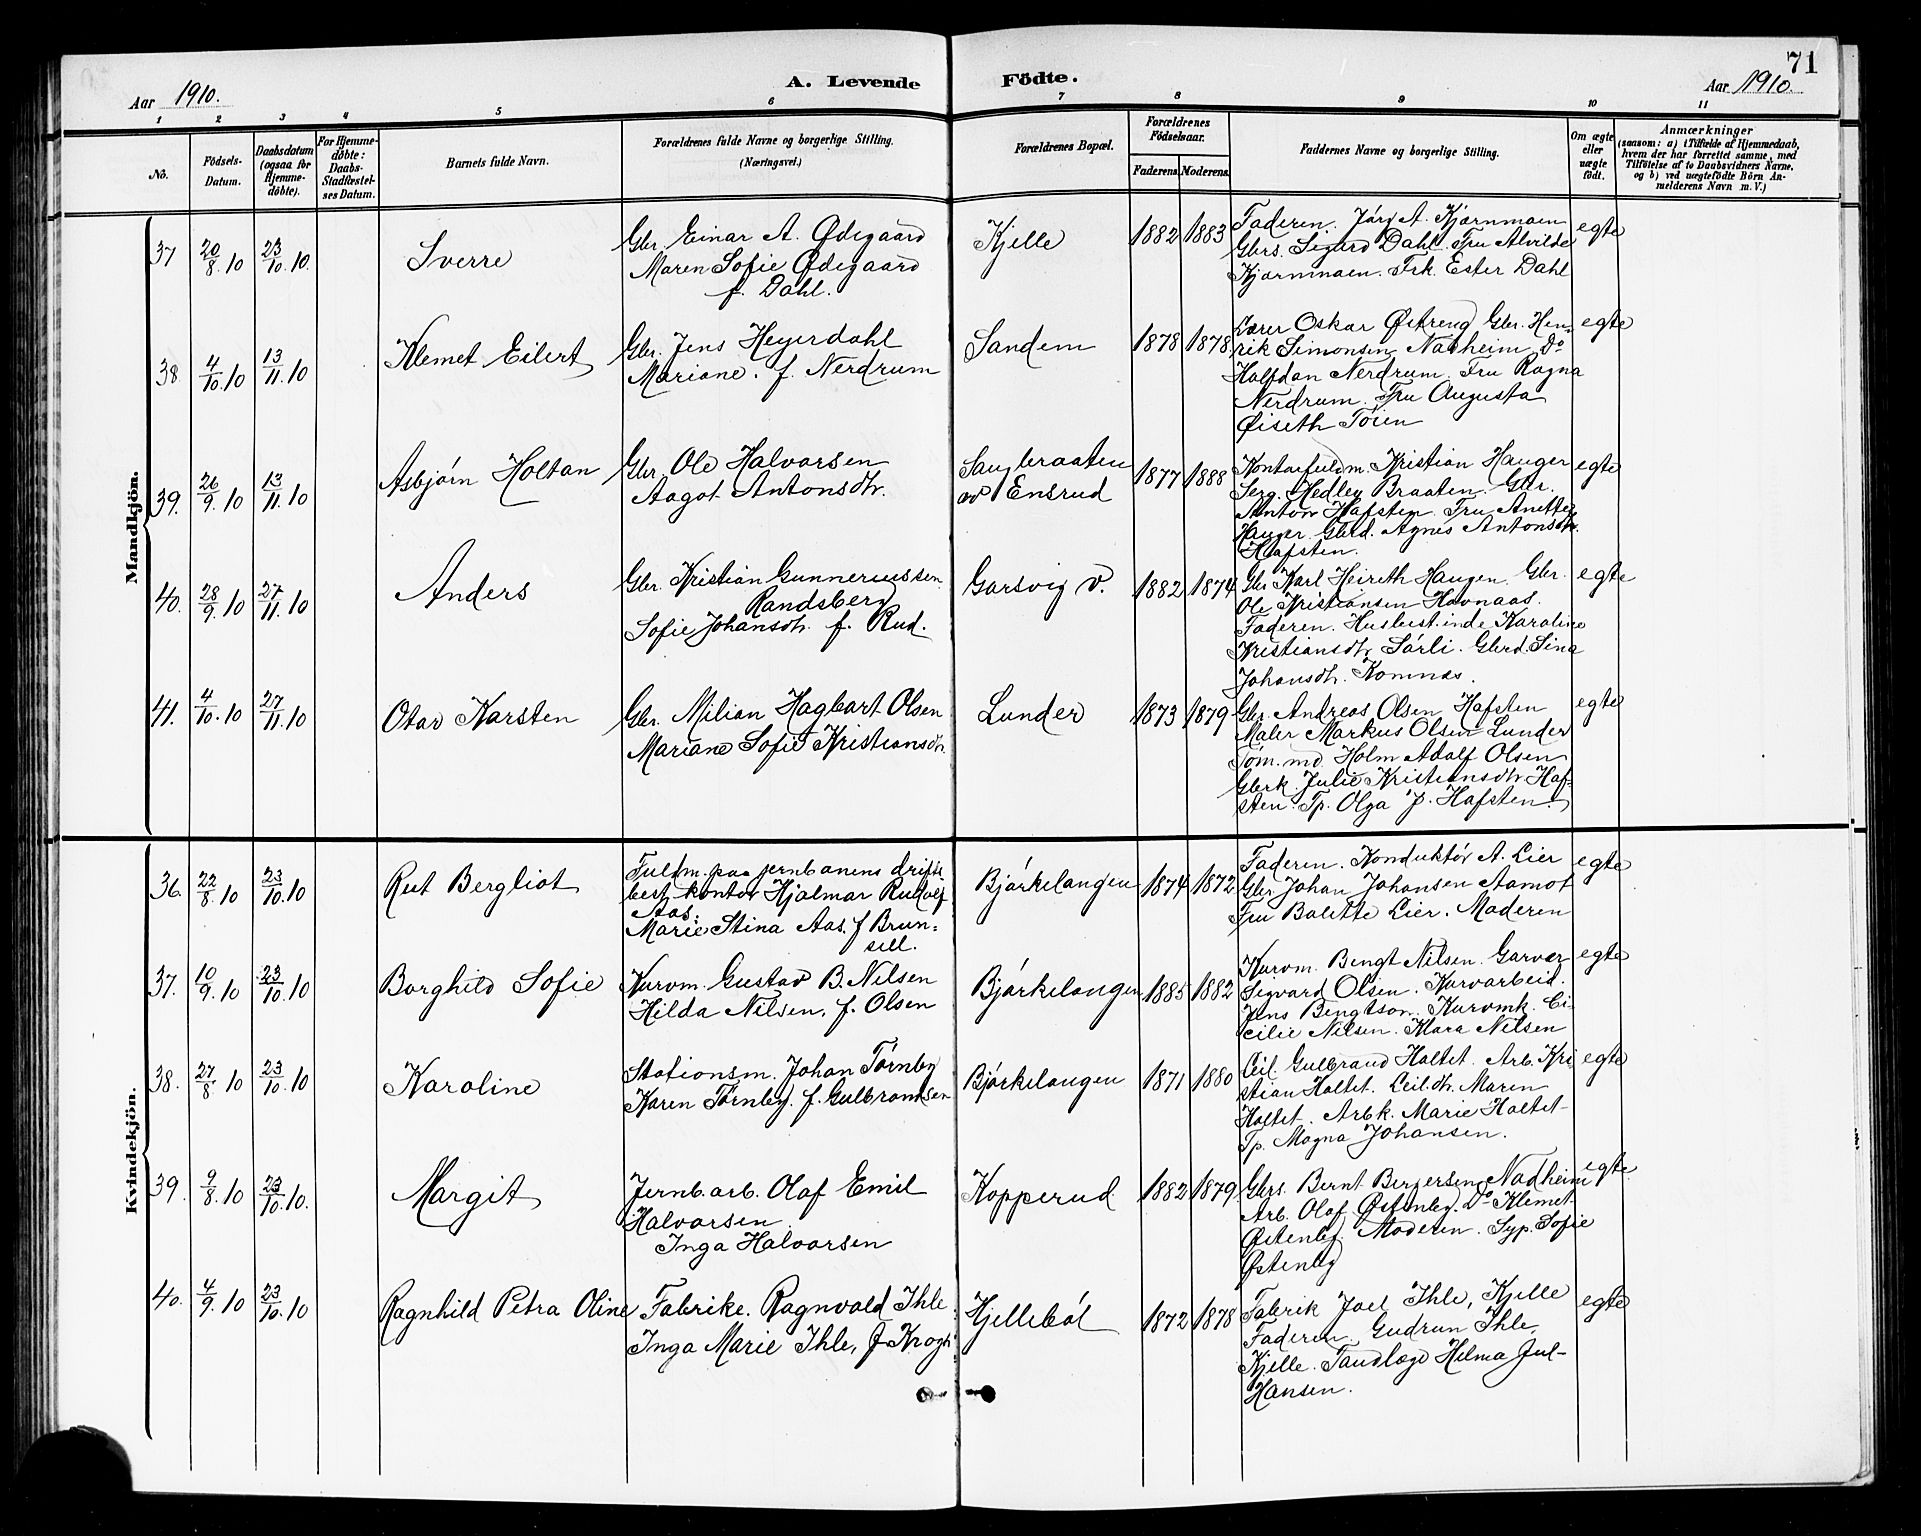 71
Aar 1910.
A. Levende Födte.
Aar 1910.
1 2 3 4 5 6 7 8 9 10 11
No.
Födsels-
Datum.
Daabsdatum
(ogsaa för
Hjemme-
döbte).
For Hjemme-
döbte:
Daabs-
Stadfæstel-
ses Datum.
Barnets fulde Navn.
Forældrenes fulde Navne og borgerlige Stilling.
(Næringsvei.)
Forældrenes Bopæl.
Forældrenes
Födselsaar.
Faderens. Moderens.
Faddernes Navne og borgerlige Stilling.
Om ægte
eller
uægte
födt.
Anmærkninger
(saasom: a) i Tilfælde af Hjemmedaab,
hvem der har forrettet samme, med
Tilföielse af to Daabsvidners Navne,
og b) ved uægtefödte Börn An-
melderens Navn m. V.)
Mandkjön.
37 20/8.10 23/10.10.
Sverre
Gbr. Einar A. Ødegaard
Maren Sofie Ødegaard
f. Dahl.
Kjelle
1882 1883
Faderen. A. Kjørnmoen
Gbrs. Sigurd Dahl. Fru Alvilde
Kjørnmoen. Frk. Ester Dahl
egte
38. 4/10.10 13/11.10
Klemet Eilert
Gbr. Jens Heyerdahl
Mariane. f. Nerdrum
Sandem
1878 1878
Lærer Oskar Østreng Gbr. Hen-
rik Simonsen Nadheim Do
Halfdan Nerdrum. Fru Ragna
Nerdrum. Fru Augusta
Øiseth Töien
egte
39. 26/9.10 13/11.10
Asbjørn Holtan
Gbr. Ole Halvorsen
Aagot Antonsdtr.
Saugbraaten
av Ensrud
1877 1888
Kontorfuldm. Kristian Hauger
Serg. Hedley Braaten. Gbr.
Anton Hafsten. Fru Anette
Hauger. Gbrd. Agnes Antonsdtr.
Hafsten.
egte
40. 28/9.10 27/11.10
Anders
Gbr. Kristian Gunneriussen
Randsberg
Sofie Johansdtr. f. Rud.
Garsvig v.
1882 1874
Gbr. Karl Heireth Haugen. Gbr.
Ole Kristiansen Hovnaas.
Faderen. Husbest.inde Karoline
Kristiansdtr Sörli. Gbrd. Sina
Johansdtr. Komnæs.
egte
41. 4/10.10 27/11.10
Otar Karsten
Gbr. Milian Hagbart Olsen
Mariane Sofie Kristiansdtr.
Lunder
1873 1879
Gbr. Andreas Olsen Hafsten
Maler Markus Olsen Lunder
Töm.md. Holm Adolf Olsen
Gbrk. Julie Kristiansdtr. Haf-
sten. Tp. Olga J. Hafsten.
egte
Kvindekjön.
36. 22/8.10 23/10.10
Rut Bergliot
Fuldm. paa jernbanens drifts
best. kontor Hjalmar Rudolf
Aas.
Marie Stina Aas. f Brun-
sell.
Bjørkelangen
1874 1872
Faderen. Konduktör A. Lier
Gbr Johan Johansen Aamot
Fru Balette Lier. Moderen
egte
37. 10/9.10 23/10.10
Borghild Sofie
Kurvm. Gustav B. Nilsen
Hilda Nilsen, f. Olsen
Bjørkelangen
1885 1882
Kurvm. Bengt Nilsen. Garver
Sigvard Olsen. Kurvarbeid.
Jens Bengtson. Kurvmk. Ci-
cilie Nilsen. Klara Nilsen
egte
38. 27/8.10 23/10.10
Karoline
Stationsm. Johan Törnby
Karen Törnby. f. Gulbrandsen
Bjørkelangen
1871 1880
Leil. Gulbrand Holtet. Arb. Kri
stian Holtet. Leil.dtr. Maren
Holtet. Arbk. Marie Holtet
Tp. Magna Johansen.
egte
39. 9/8.10 23/10.10.
Margit
Jernb.arb. Olaf Emil
Halvorsen
Inga Halvorsen
Kopperud
1882 1879
Gbrs. Bernt Bergersen Nadheim
Arb. Olaf Østenby. Do Klemet
Østenby. Moderen. Syp. Sofie
Østenby
egte
40. 4/9.10 23/10.10
Ragnhild Petra Oline
Fabrike. Ragnvald Ihle
Inga Marie Ihle, f Krogh
Kjellebøl
1872 1878
Fabrik Joel Ihle, Kjelle
Faderen. Gudrun Ihle,
Kjelle. Tandlæge Helma Jul-
Hansen.
egte